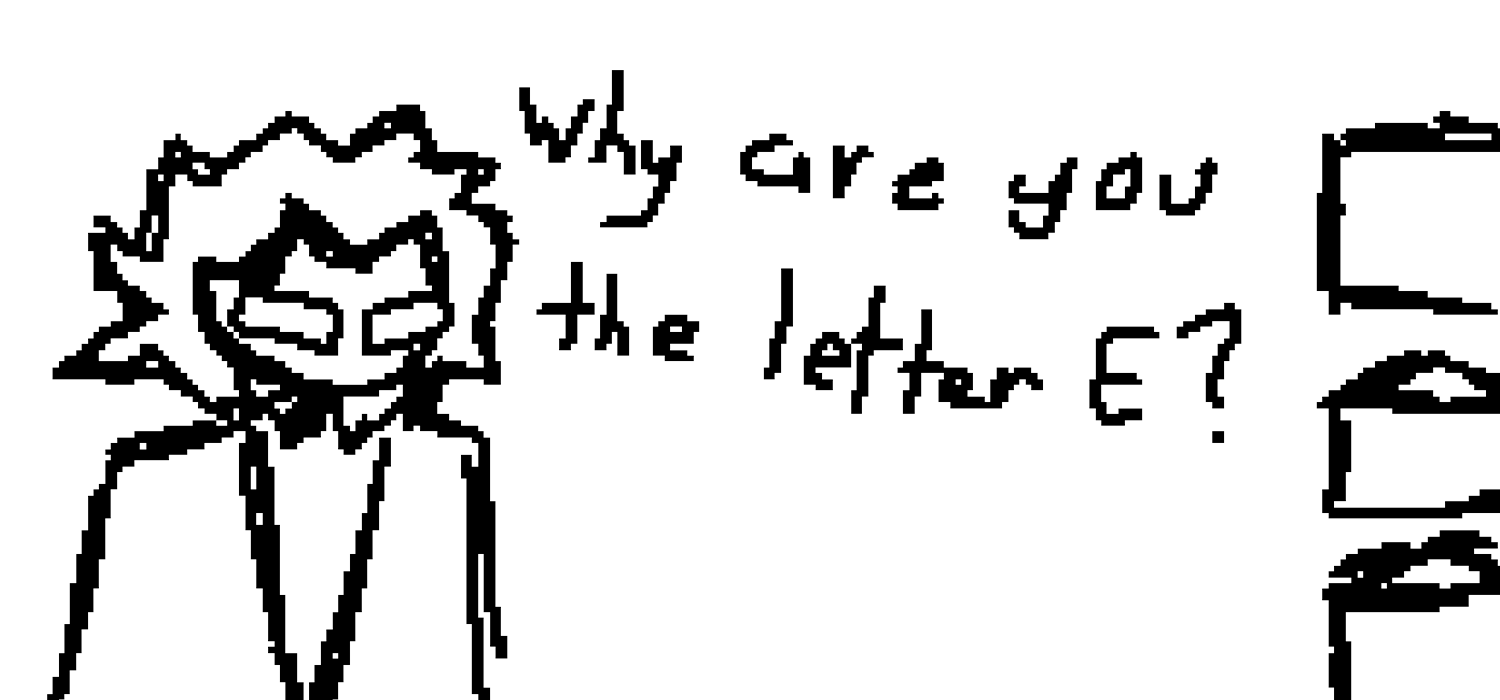 Why are you
the letter E?